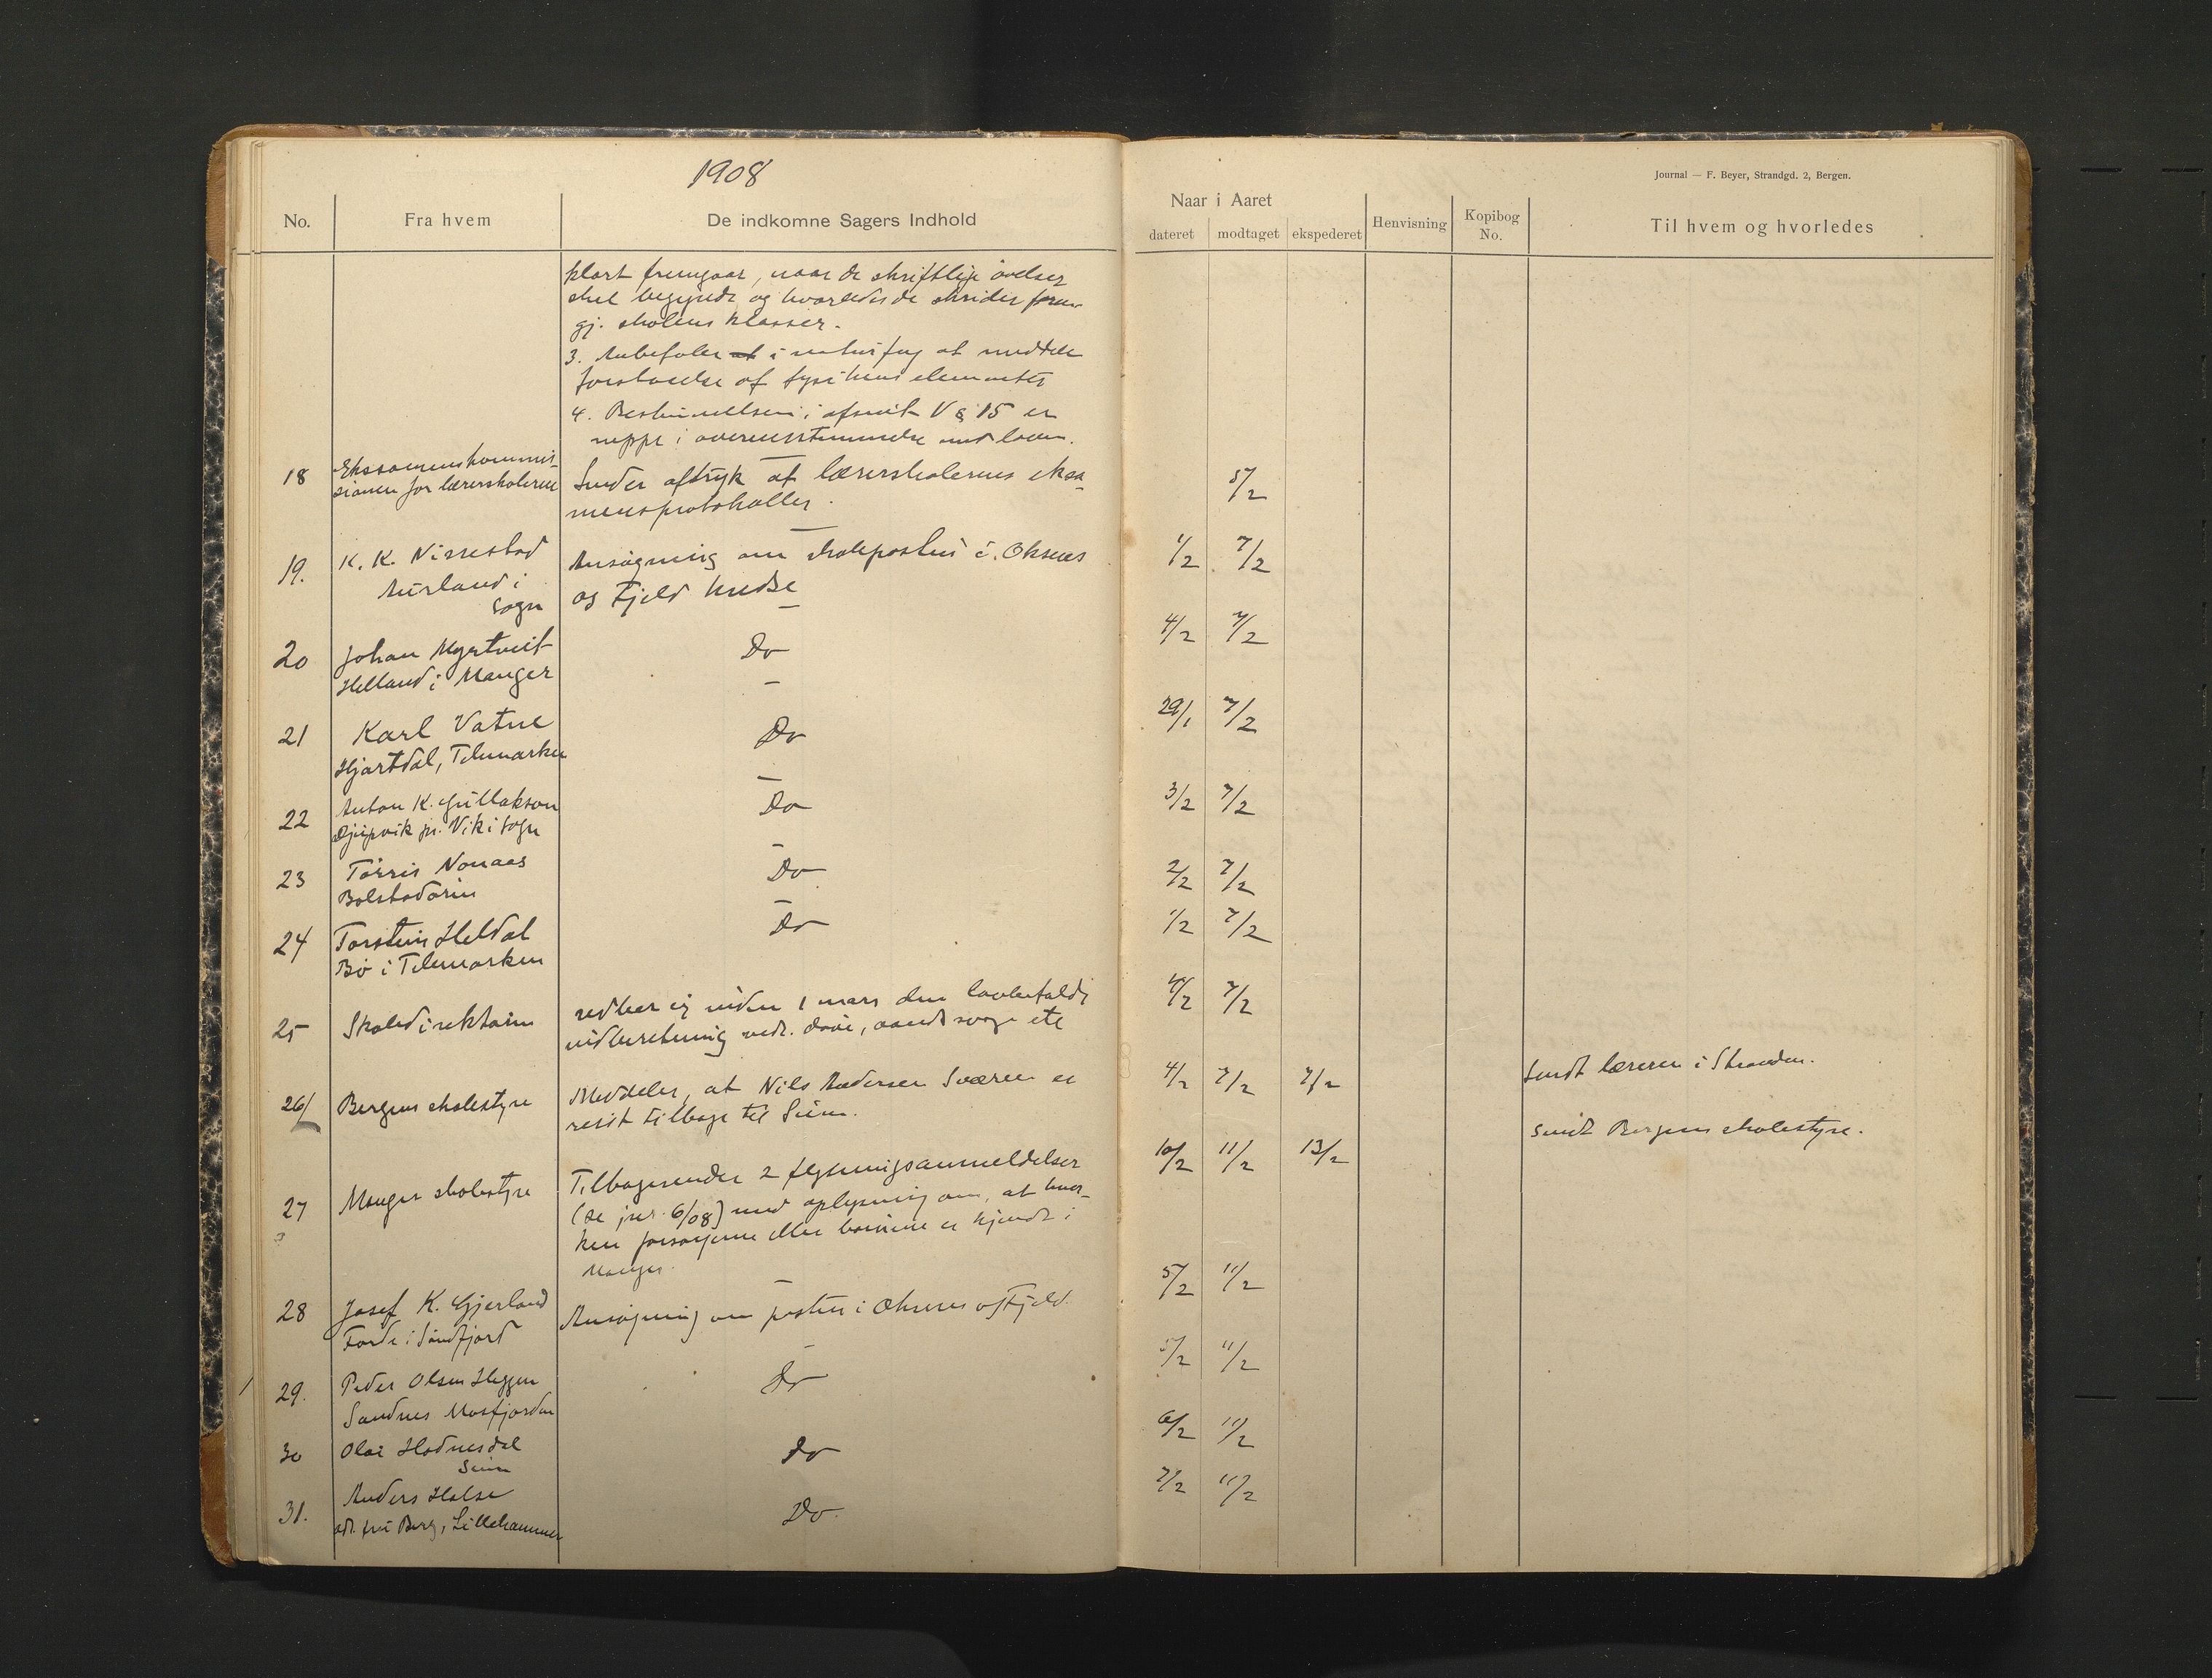 1908
Journal — F. Beyer, Strandgd. 2, Bergen.
No. Fra hvem De indkomne Sagers Indhold
Naar i Aaret
dateret modtaget ekspederet Henvisning Kopibog No. Til hvem og hvorledes
klart fremgaar, naar de skriftlige øvelser
skal begynde og hvorledes de skrider frem
gj. skolens klasser.
3. Anbefaler at i naturfag at meddele
forstaaelse af fysikens elementer
4. Bestemmelsen i afsnit V § 15 er
neppe i overensstemmelse med loven.
18 Eksamenskommis-
sionen for lærerskolerne Sender aftryk af lærerskolernes eksa-
mensprotokoller. 5/2
19. K. K. Nissestad Ansøgning om skoleposten i Oksnes 1/2 7/2
Aurland i og Fjeld kredse
Sogn
20 Johan Myrtveit Do 4/2 7/2
Helland i Manger
21 Karl Vatne Do 29/1 7/2
Hjartdal, Telemarken
22 Anton K. Gullakson Do 3/2 7/2
Djupvik pr. Vik i Sogn
23 Tørris Nonaas Do 2/2 7/2
Bolstadøren
24 Torstein Heldal Do 1/2 7/2
Bø i Telemarken
25 Skoledirektøren udbeer sig inden 1 mars den lovbefalde 4/2 7/2
indberetning vedr. døve, aandssvage etc
26/ Bergens skolestyre Meddeler, at Nils Andersen Sværen er 4/2 7/2 7/2 Sendt læreren i Stranden.
reist tilbage til Seim.
27 Manger skolestyre Tilbagesender 2 flytningsanmeldelser 10/2 11/2 13/2 Sendt Bergens skolestyre.
(se jnr. 6/08) med oplysning om, at hver-
ken forsørgerne eller børnene er kjendt i
Manger.
28 Josef K. Gjerland Ansøgning om posten i Oksnes og Fjeld. 5/2 11/2
Førde i Søndfjord
29. Peder Olsen Heggen Do 5/2 11/2
Sandnes Masfjorden
30 Olai Hodnesdal Do 6/2 11/2
Seim
31. Anders Halse Do 7/2 11/2
adr. fru Berg, Lillehammer